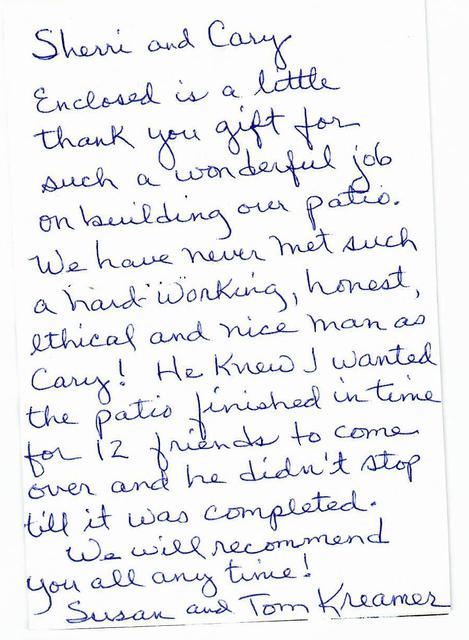 Sherri and Cary
Enclosed is a little
thank you gift for
such a wonderful job
on building our patio.
We have never met such
a hard-working, honest,
ethical and nice man as
Cary! He knew I wanted
the patio finished in time
for 12 friends to come
over and he didn't stop
till it was completed.
We will recommend
you all any time!
Susan and Tom Kreamer